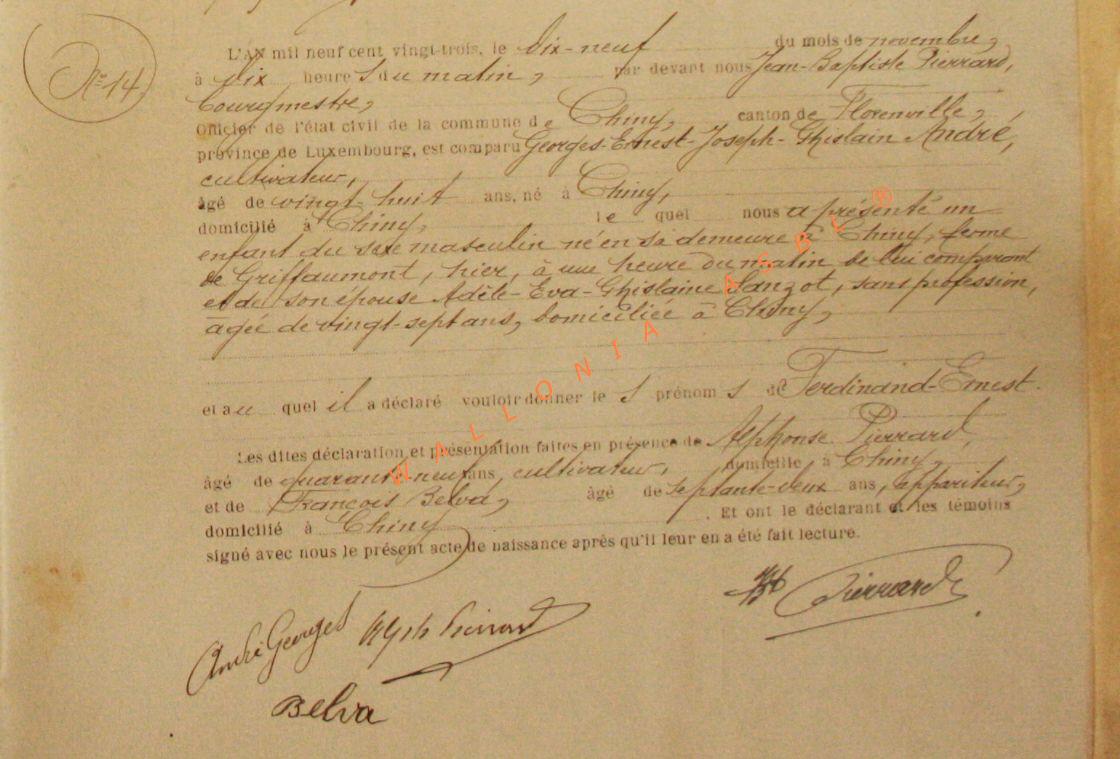 N° 14
L'AN mil neuf cent vingt-trois, le dix-neuf du mois de novembre,
à dix heure s du matin, par devant nous Jean-Baptiste Pierrard,
bourgmestre,
Officier de l'état civil de la commune de Chiny, canton de Florenville,
province de Luxembourg, est comparu Georges-Ernest-Joseph-Ghislain André,
cultivateur,
âgé de vingt-huit ans, né à Chiny,
domicilié à Chiny, le quel nous a présenté un
enfant du sexe masculin né en sa demeure à Chiny, ferme
de Griffaumont, hier, à une heure du matin de lui comparant
et de son épouse Adèle-Eva-Ghislaine Sanzot, sans profession,
âgée de vingt-sept ans, domiciliée à Chiny,
et au quel il a déclaré vouloir donner le s prénom s de Ferdinand-Ernest.
Les dites déclaration et présentation faites en présence de Alphonse Pierrard,
âgé de quarante-neuf ans, cultivateur, domicilié à Chiny,
et de François Belva, âgé de septante-deux ans, appariteur,
domicilié à Chiny . Et ont le déclarant et les témoins
signé avec nous le présent acte de naissance après qu'il leur en a été fait lecture.
JB Pierrard
André Georges Alph Pierrard
Belva
WALLONIA ASBL ®